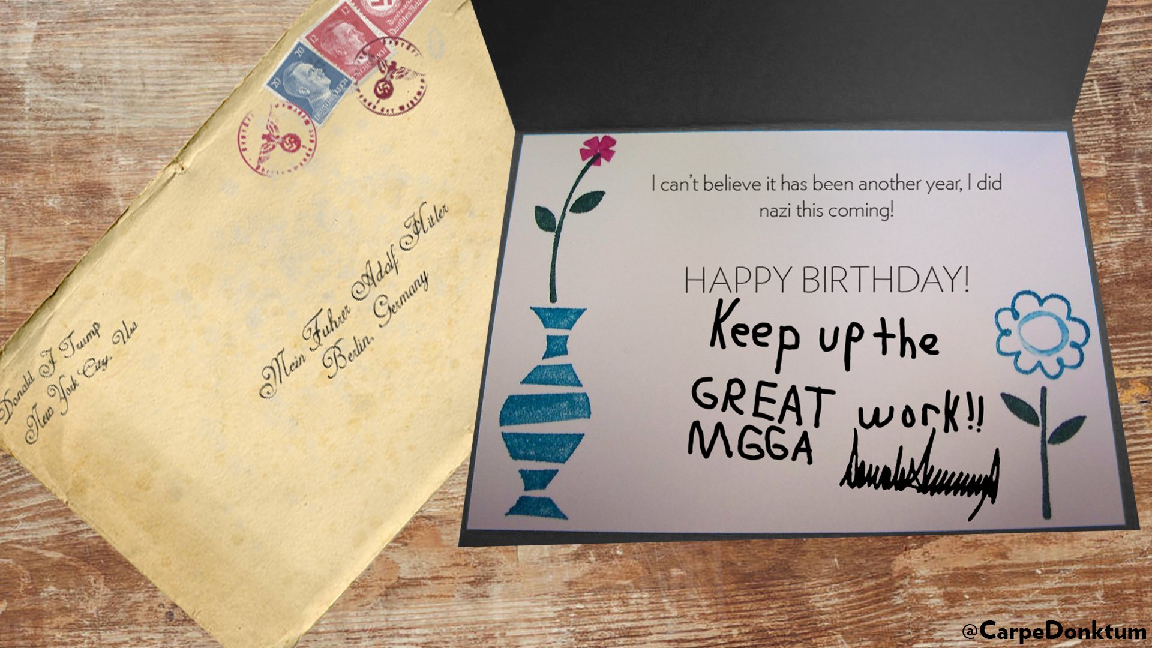 Donald J Trump
New York City, Usa
Mein Fuhrer Adolf Hitler
Berlin, Germany
20 20
12 12
I can't believe it has been another year, I did
nazi this coming!
HAPPY BIRTHDAY!
Keep up the
GREAT work!!
MGGA
@CarpeDonktum